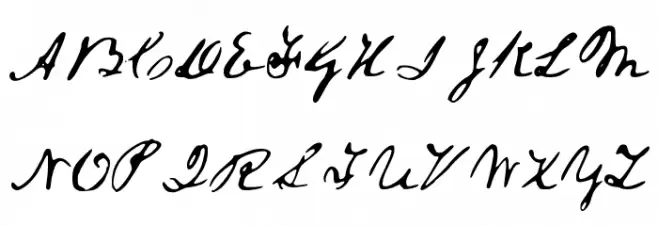 A B C D E F G H I J K L M
N O P Q R S T U V W X Y Z